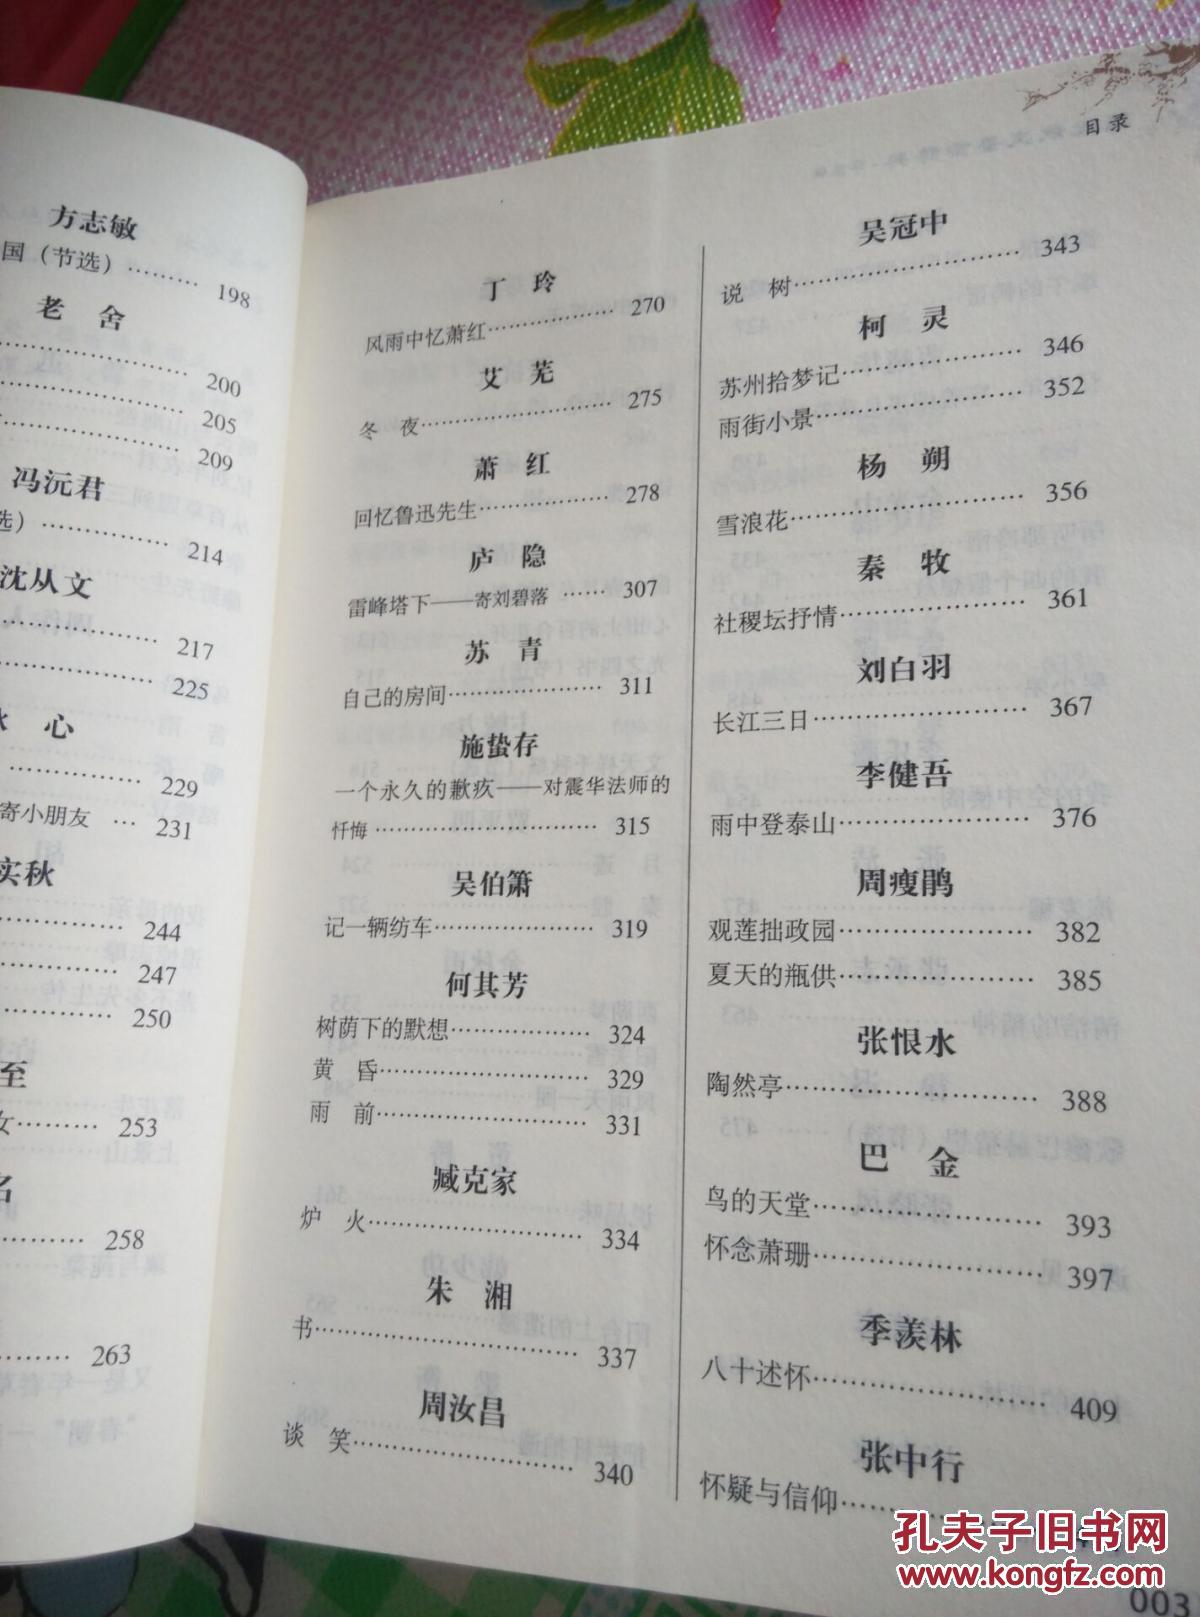 方志敏
国（节选）……… 198
老 舍
………………… 200
………………… 205
………………… 209
冯沅君
选）………… 214
沈从文
………… 217
………… 225
心
………… 229
寄小朋友 … 231
实秋
………… 244
………… 247
………… 250
至
女……… 253
名
………… 258
………… 263
目录
丁 玲
风雨中忆萧红……………… 270
艾 芜
冬 夜……………………… 275
萧 红
回忆鲁迅先生……………… 278
庐 隐
雷峰塔下——寄刘碧落 …… 307
苏 青
自己的房间………………… 311
施蛰存
一个永久的歉疚——对震华法师的
忏悔 ………………………… 315
吴伯箫
记一辆纺车………………… 319
何其芳
树荫下的默想……………… 324
黄 昏……………………… 329
雨 前……………………… 331
臧克家
炉 火……………………… 334
朱 湘
书…………………………… 337
周汝昌
谈 笑……………………… 340
吴冠中
说 树……………………… 343
柯 灵
苏州拾梦记………………… 346
雨街小景…………………… 352
杨 朔
雪浪花……………………… 356
秦 牧
社稷坛抒情………………… 361
刘白羽
长江三日…………………… 367
李健吾
雨中登泰山………………… 376
周瘦鹃
观莲拙政园………………… 382
夏天的瓶供………………… 385
张恨水
陶然亭……………………… 388
巴 金
鸟的天堂…………………… 393
怀念萧珊…………………… 397
季羡林
八十述怀…………………… 409
张中行
怀疑与信仰………………
003
孔夫子旧书网
WWW.KONGFZ.COM